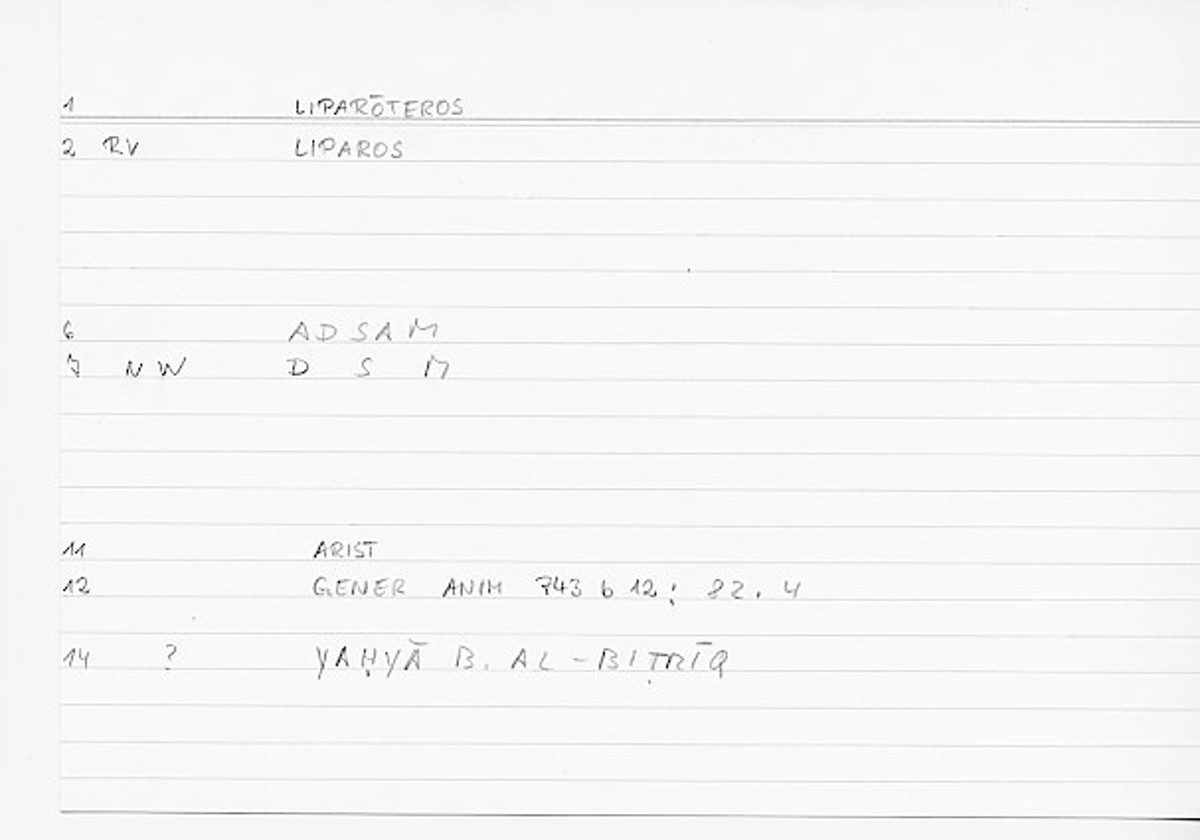 1 LIPARŌTEROS
2 RV LIPAROS
6 ADSAM
7 NW D S M
11 ARIST
12 GENER ANIM 743 b 12; 82.4
14 ? YAḤYĀ B. AL-BIṬRĪQ